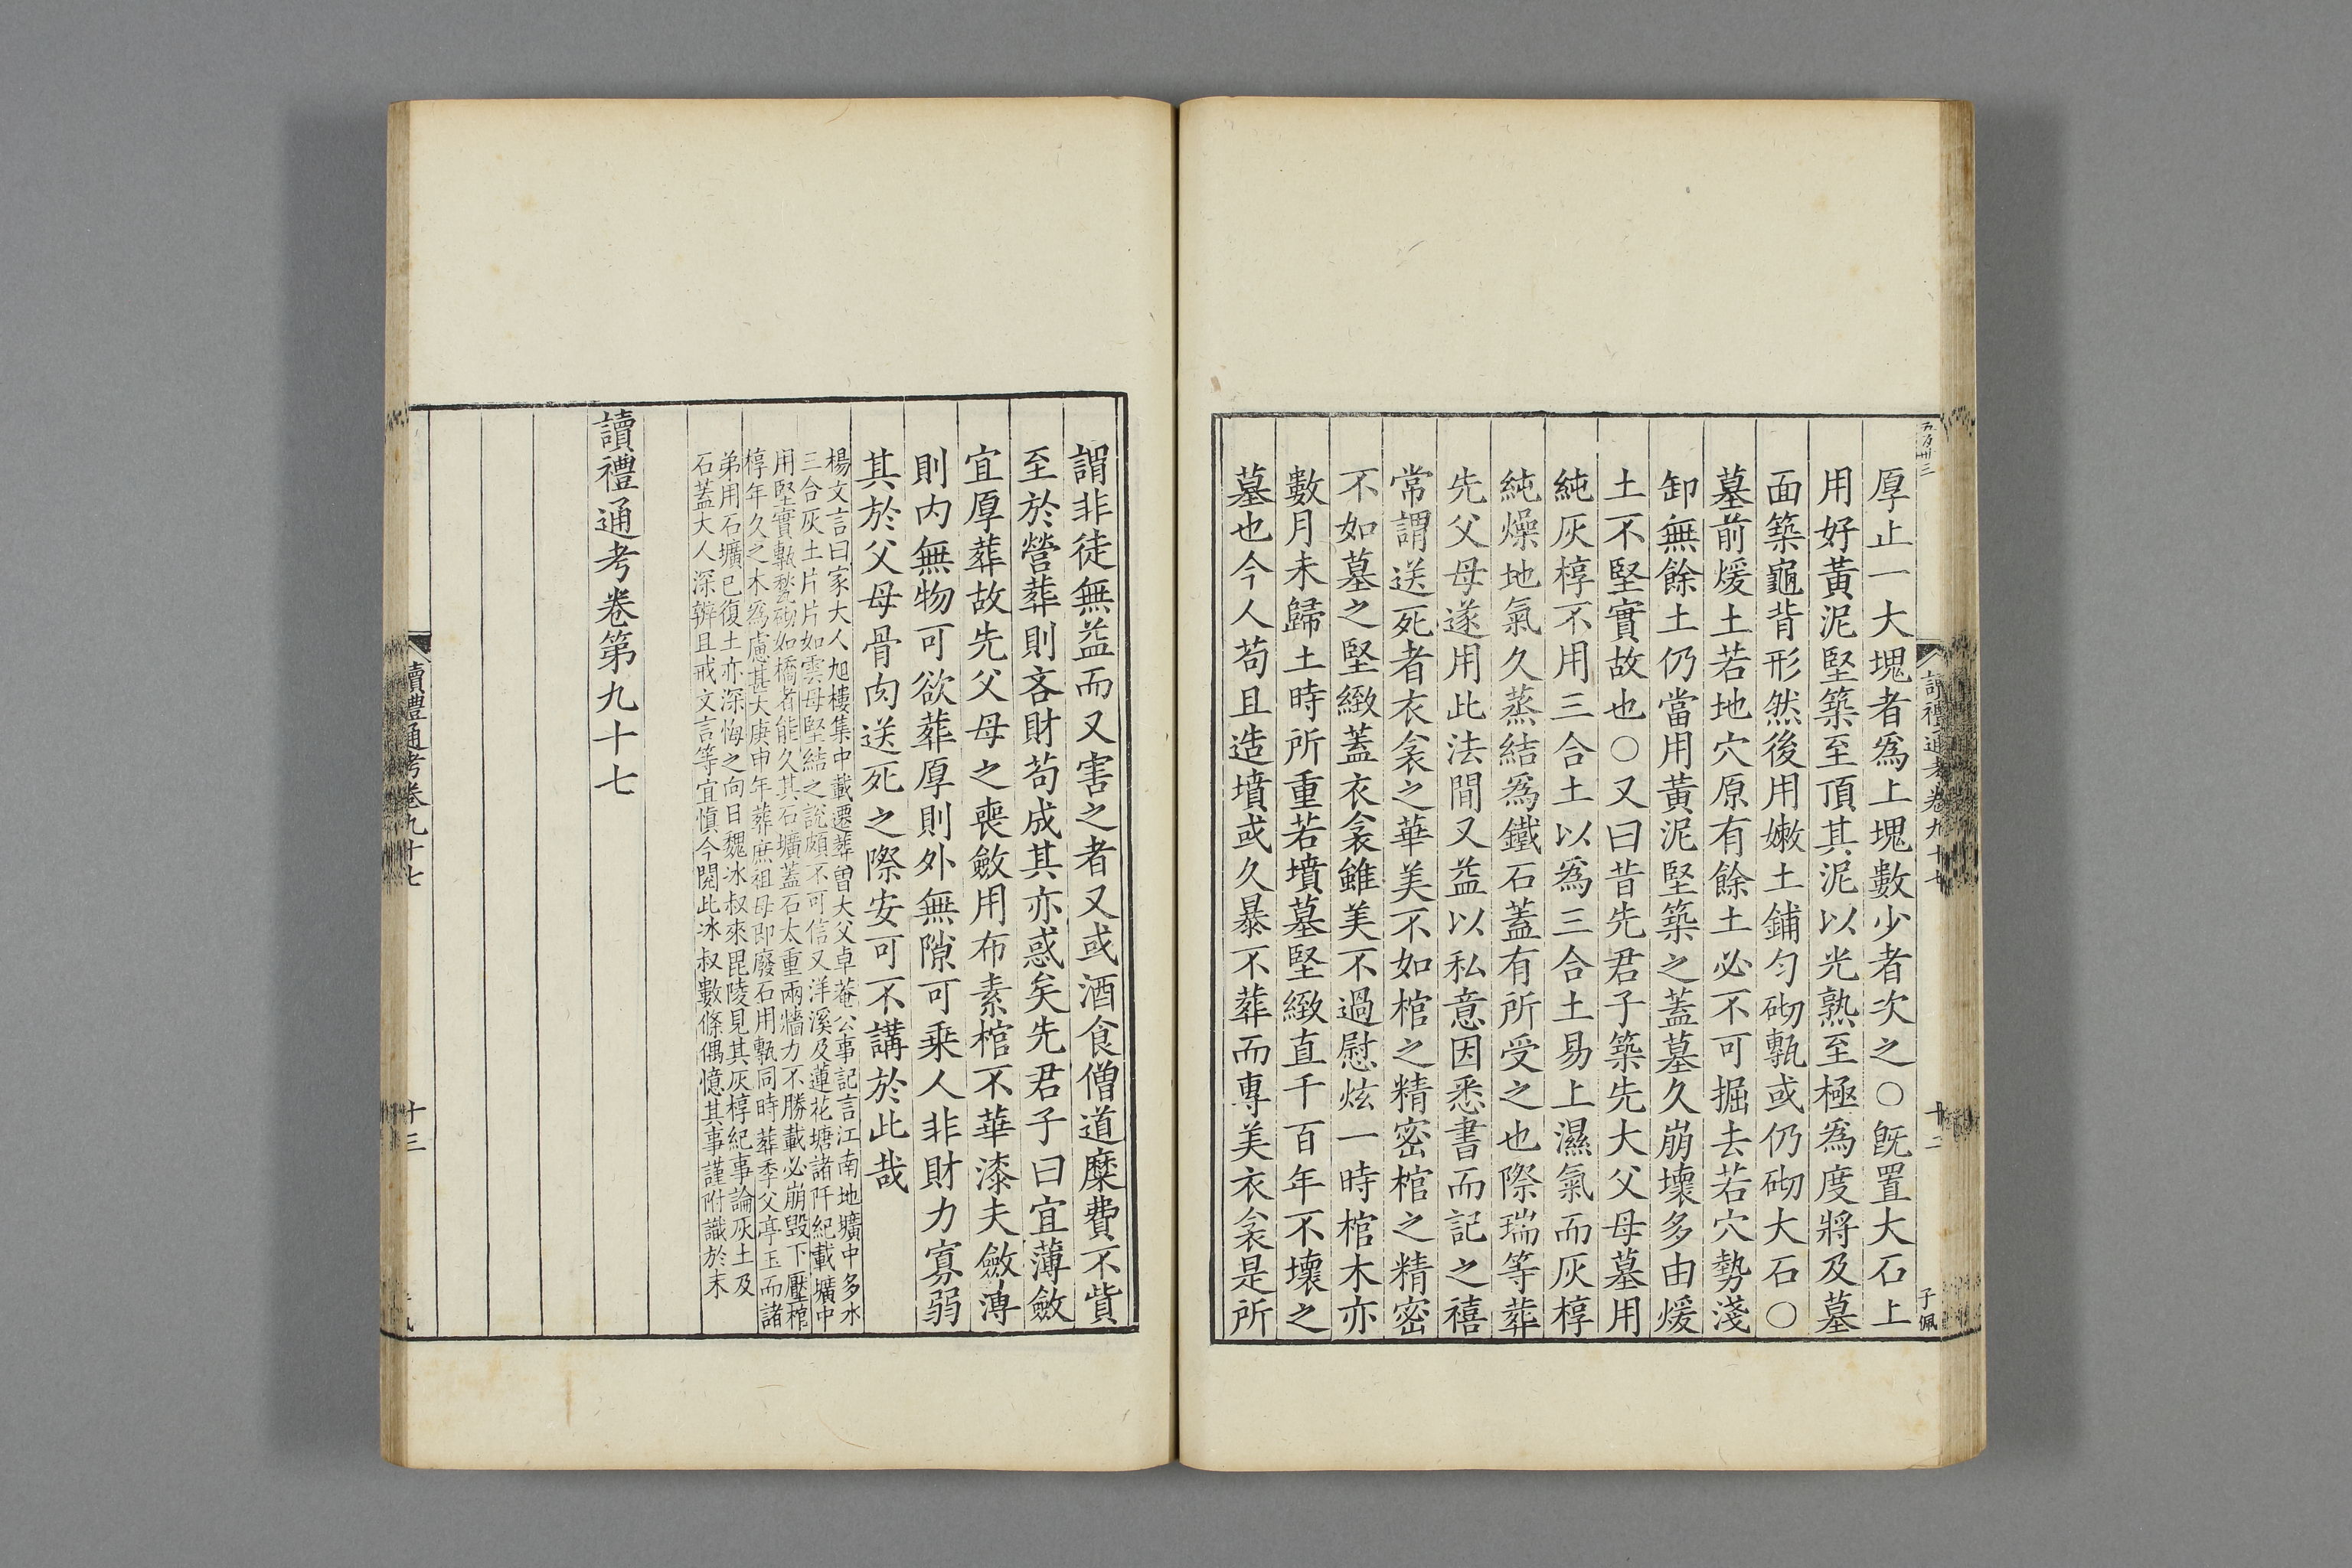 厚止一大塊者爲上塊數少者次之○旣置大石上
用好黃泥堅築至頂其泥以光熟至極爲度將及墓
面築龜背形然後用嫩土鋪勻砌甎或仍砌大石○
墓前煖土若地穴原有餘土必不可掘去若穴勢淺
卸無餘土仍當用黃泥堅築之蓋墓久崩壞多由煖
土不堅實故也○又曰昔先君子築先大父母墓用
純灰椁不用三合土以爲三合土易上濕氣而灰椁
純燥地氣久蒸結爲鐵石蓋有所受之也際瑞等葬
先父母遂用此法閒又益以私意因悉書而記之禧
常謂送死者衣衾之華美不如棺之精密棺之精密
不如墓之堅緻蓋衣衾雖美不過慰炫一時棺木亦
數月未歸土時所重若墳墓堅緻直千百年不壞之
墓也今人苟且造墳或久暴不葬而專美衣衾是所
子佩
謂非徒無益而又害之者又或酒食僧道糜費不貲
至於營葬則吝財苟成其亦惑矣先君子曰宜薄斂
宜厚葬故先父母之喪斂用布素棺不華漆夫斂薄
則内無物可欲葬厚則外無隙可乗人非財力寡弱
其於父母骨肉送死之際安可不講於此哉
楊文言曰家大人旭樓集中載遷葬曾大父卓菴公事記言江南地壙中多水
三合灰土片片如雲母堅結之說頗不可信又洋溪及蓮花塘諸阡紀載壙中
用堅實甎甃砌如橋者能久其石壙蓋石太重兩牆力不勝載必崩毀下壓棺
椁年久之木爲慮甚大庚申年葬庶祖母即廢石用甎同時葬季父亭玉而諸
弟用石壙已復土亦深悔之向日魏冰叔來毘陵見其灰椁紀事論灰土及
石蓋大人深辨且戒文言等宜愼今閱此冰叔數條偶憶其事謹附識於末
讀禮通考卷第九十七
讀禮通考卷九十七
十三